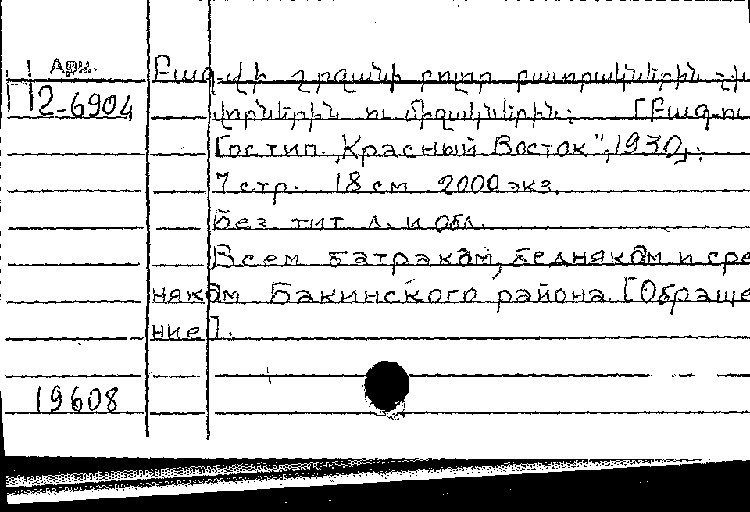 Арм.
Բագ-վի շրջանի բոլոր բատրակներին
П2-6904
վորներին ու միջակներին: [Բագ-ու
Гостип. „Красный Восток", 1930,
7 стр. 18 см 2000 экз.
Без тит л. и обл.
Всем батракам, беднякам и сре
някам Бакинского района. [Обраще
ние].
19608